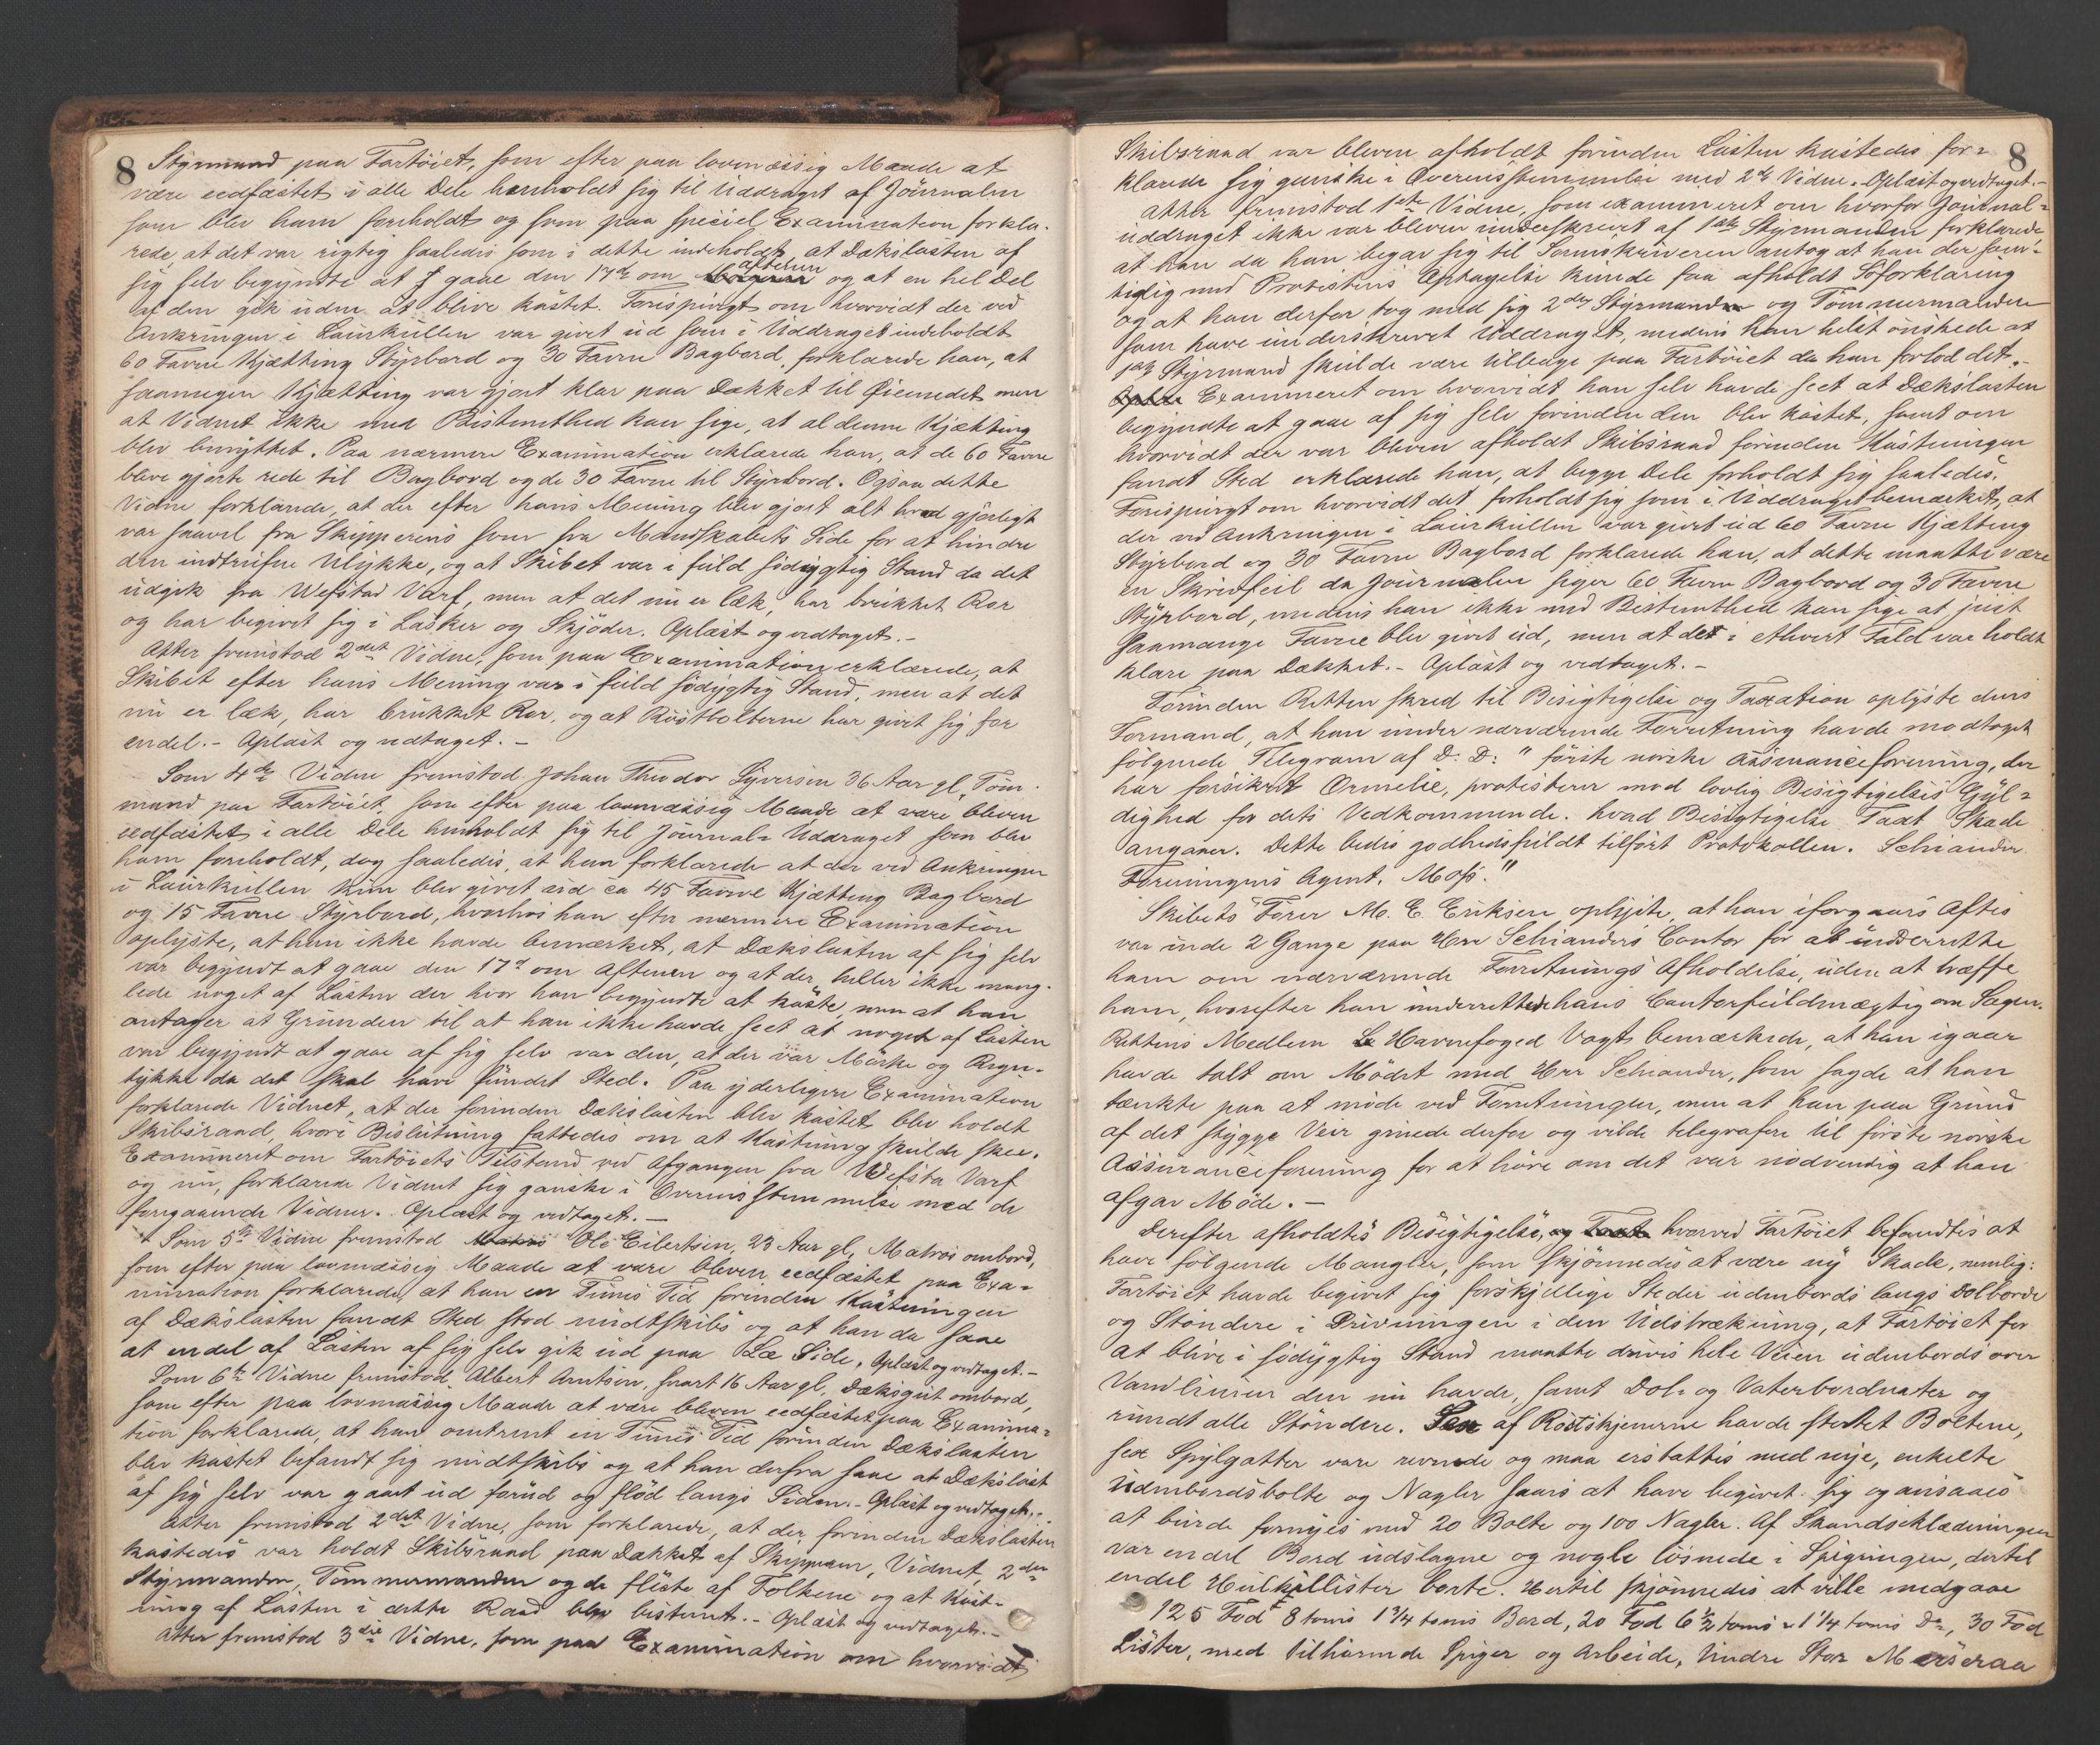 8
Styrmand paa Fartöiet, som efter paa lovmæssig Maade at
være eedfæstet i alle Dele henholdt sig til Uddraget af Journalen
som blev ham foreholdt og som paa speciel Examination forkla-
rede, at det var rigtig saaledes som i dette indeholdt, at Dækslasten af
sig selv begyndte at gaae den 17de om aftenen og at en hel Del
af den gik uden at blive kastet. Forespurgt om hvorvidt der ved
Ankringen i Laurkullen var givet ud som i Uddraget indeholdt
60 Favne Kjætting Styrbord og 30 Favne Bagbord, forklarede han, at
saamegen Kjætting var gjort klar paa Dækket til Øiemedet men
at Vidnet ikke med Bestemthed kan sige, at al denne Kjætting
blev benyttet. Paa nærmere Examination erklærede han, at de 60 Favne
bleve gjorte rede til Bagbord og de 30 Favne til Styrbord. Ogsaa dette
Vidne forklarede, at der efter hans Mening blev gjort alt hvad gjörligt
var saavel fra Skipperens som fra Mandskabets Side for at hindre
den indtrufne Ulykke, og at Skibet var i fuld södygtig Stand da det
udgik fra Wefstad Varf, men at det nu er læk, har brækket Ror
og har begivet sig i Lasker og Skjöder. Oplæst og vedtaget.-
Atter fremstod 2det Vidne, som paa Examination erklærede, at
Skibet efter hans Mening var i fuld södygtig Stand, men at det
nu er læk, har brukket Ror, og at Röstboltene har givet sig for
endel.- Oplæst og vedtaget.-
Som 4de Vidne fremstod Johan Theodor Syversen 36 Aar gl. Töm-
mand paa Fartöiet som efter paa lovmæssig Maade at være bleven
eedfæstet i alle Dele henholdt sig til Journal-Uddraget som blev
ham foreholdt, dog saaledes, at han forklarede at der ved Ankringen
i Laurkullen kun blev givet ud ca 45 Favne Kjætting Bagbord
og 15 Favne Styrbord, hvorhos han efter nærmere Examination
oplyste, at han ikke havde bemærket, at Dækslasten af sig selv
var begyndt at gaae den 17d om Aftenen og at der heller ikke mang-
lede noget af Lasten der hvor han begyndte at kaste, men at han
antager at Grunden til at han ikke havde seet at noget af Lasten
var begyndt at gaae af sig selv var den, at der var Mörke og Regn-
tykke da det skal have fundet Sted. Paa yderligere Examination
forklarede Vidnet, at der forinden Dækslasten blev kastet blev holdt
Skibsraad, hvori Beslutning fattedes om at Kastning skulde skee.
Examineret om Fartöiets Tilstand ved Afgangen fra Wefsta Varf
og nu, forklarede Vidnet sig ganske i Overensstemmelse med de
foregaaende Vidner. Oplæst og vedtaget.-
Som 5te Vidne fremstod Ole Eilertsen, 23 Aar gl. Matros ombord,
som efter paa lovmæssig Maade at være bleven eedfæstet paa Exa-
mination forklarede, at han en Times Tid forinden Kastningen
af Dækslasten fandt Sted stod midtskibs og at han da saae
at endel af Lasten af sig selv gik ud paa Læ Side. Oplæst og vedtaget.-
Som 6te Vidne fremstod Albert Arntsen, snart 16 Aar gl. Dæksgut ombord,
som efter paa lovmæssig Maade at være bleven eedfæstet paa Examina-
tion forklarede, at han omtrent en Times Tid forinden Dækslasten
blev kastet befandt sig midtskibs og at han derfra saae at Dækslast
af sig selv var gaaet ud forud og flöd langs Siden.- Oplæst og vedtaget.-
Atter fremstod 2det Vidne, som forklarede, at der forinden Dækslasten
kastedes var holdt Skibsraad paa Dækket af Skipperen, Vidnet, 2den
Styrmanden, Tömmermanden og de fleste af Folkene og at Kast-
ning af Lasten i dette Raad blev bestemt.- Oplæst og vedtaget.-
Atter fremstod 3die Vidne, som paa Examination om hvorvidt
8
Skibsraad var bleven afholdt forinden Lasten kastedes for-
klarede sig ganske i Overensstemmelse med 2de Vidne. Oplæst og vedtaget.-
Atter fremstod 1ste Vidne, som examineret om hvorfor Journal-
uddraget ikke var bleven underskrevet af 1ste Styrmanden forklarede
at han da han begav sig til Sorenskriveren antog at han der sam-
tidig med Protestens Optagelse kunde faa afholdt Söforklaring
og at han derfor tog med sig 2den Styrmanden og Tömmermanden
som have underskrevet Uddraget, medens han helst önskede at
1ste Styrmand skulde være tilstede paa Fartöiet da han forlod det.-
Examineret om hvorvidt han selv havde seet at Dækslasten
begyndte at gaae af sig selv forinden den blev kastet, samt om
hvorvidt der var bleven afholdt Skibsraad forinden Kastningen
fandt Sted erklærede han, at begge Dele forholdt sig saaledes.
Forespurgt om hvorvidt det forholdt sig som i Uddraget bemærket, at
der ved Ankringen i Laurkullen var givet ud 60 Favne Kjætting
Styrbord og 30 Favne Bagbord forklarede han, at dette maatte være
en Skrivfeil da Journalen siger 60 Favne Bagbord og 30 Favne
Styrbord, medens han ikke med Bestemthed kan sige at just
saamange Favne blev givet ud, men at det i ethvert Fald var holdt
klare paa Dækket.- Oplæst og vedtaget.-
Forinden Retten skred til Besigtigelse og Taxation oplyste dens
Formand, at han under nærværende Forretning havde modtaget
fölgende Telegram af D. D: "förste norske Assuranceforening, der
har forsikret Ornelie, protesterer mod lovlig Besigtigelses Gyl-
dighed for dets Vedkommende. hvad Besigtigelse Taxt Skade
angaaer. Dette bedes godhedsfuldt tilfört Protokollen. Schiander
Foreningens Agent. Moss."
Skibets Förer M. E. Eriksen oplyste, at han iforgaars Aftes
var inde 2 Gange paa Herr Schianders Contor for at underrette
ham om nærværende Forretnings Afholdelse, uden at træffe
ham, hvorefter han underrettede hans Contorfuldmægtig om Sagen.
Rettens Medlem Havnefoged Vogt bemærkede, at han igaar
havde talt om Mödet med Herr Schiander, som sagde at han
tænkte paa at möde ved Forretningen, men at han paa Grund
af det stygge Veir grinede derfor og vilde telegrafere til förste norske
Assuranceforening for at höre om det var nödvendig at han
afgav Möde.-
Derefter afholdtes Besigtigelse, hvorved Fartöiet befandtes at
have fölgende Mangler, som skjönnedes at være ny Skade, nemlig:
Fartöiet havde begivet sig forskjellige Steder udenbords langs Dolborde
og Stöndere i Drivningen i den Udstrækning, at Fartöiet for
at blive i södygtig Stand maatte drives hele Veien udenbords over
Vandlinien den nu havde, samt Dol- og Vaterbordnater og
rundt alle Stöndere. Sex af Röstskjenerne havde stertet Boltene,
sex Spylgatter vare revnede og maa erstattes med nye, enkelte
Udenbordsbolte og Nagler saaes at have begivet sig og ansaaes
at burde fornyes med 20 Bolte og 100 Nagler. Af Skandseklædningen
var endel Bord udslagne og nogle lösnede i Spigringen, dertil
endel Hulkillister borte. Hertil skjönnedes at ville medgaae
125 Fod 8 toms 1 3/4 toms Bord, 20 Fod 6 1/2 toms 1 1/4 toms Do, 30 Fod
Lister, med tilhörende Spiger og Arbeide, Undre Stor Merseraa